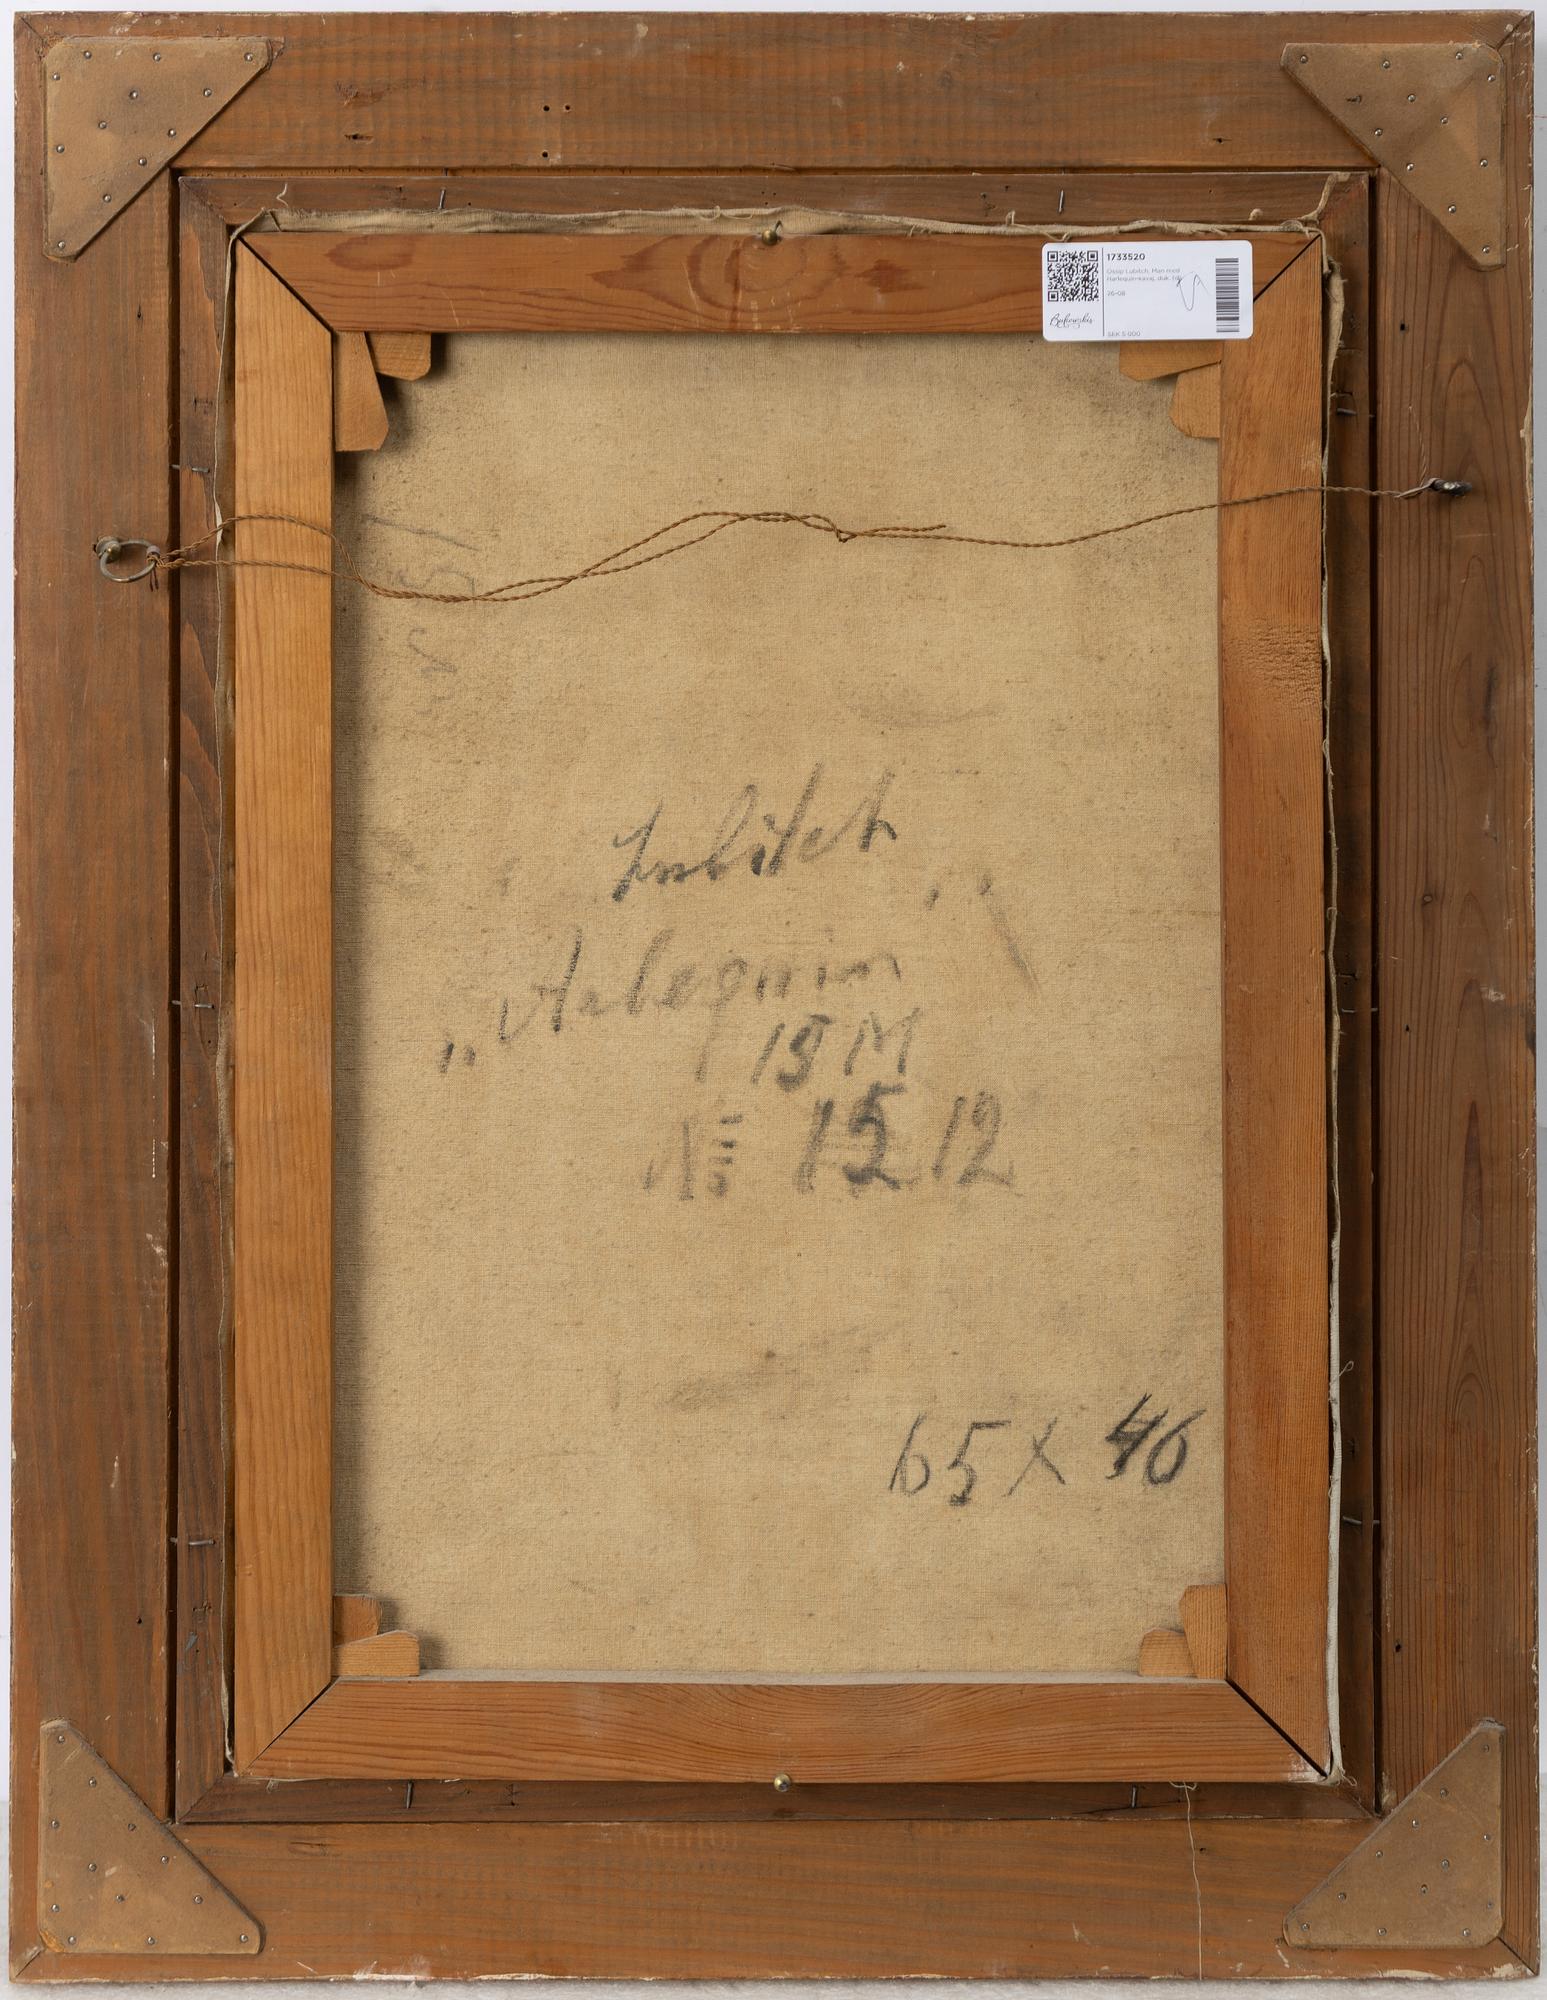 1733520
Ossip Lubitch, Man med
Harlequin-kavaj, duk.
26-08
Bukowskis
SEK 5 000
Lubitch
„Arlequin
15 M
№ 15 12
65 x 46